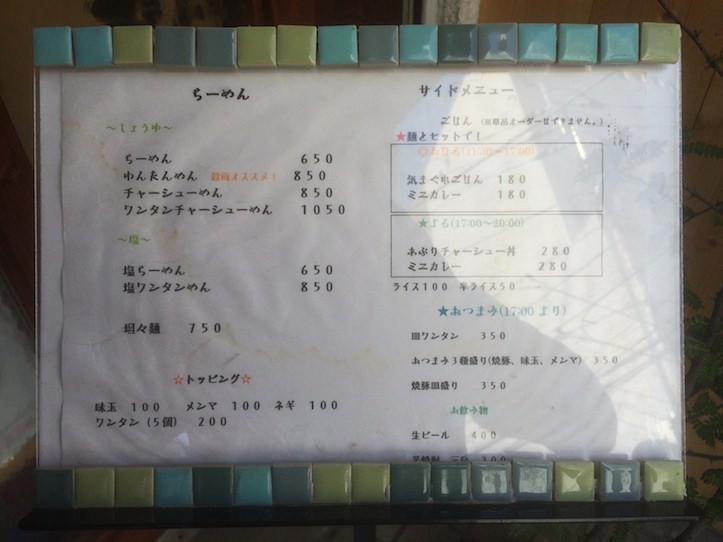 らーめん
～しょうゆ～
らーめん 650
わんたんめん オススメ！ 850
チャーシューめん 850
ワンタンチャーシューめん 1050
～塩～
塩らーめん 650
塩ワンタンめん 850
坦々麺 750
☆トッピング☆
味玉 100 メンマ 100 ネギ 100
ワンタン（5個） 200
サイドメニュー
ごはん （※単品オーダーはできません。）
★麺とセットで！
気まぐれごはん 180
ミニカレー 180
★よる(17:00～20:00)
あぶりチャーシュー丼 280
ミニカレー 280
ライス100 半ライス50
★おつまみ(17:00 より)
皿ワンタン 350
おつまみ3種盛り(焼豚、味玉、メンマ) 350
焼豚皿盛り 350
お飲み物
生ビール 400